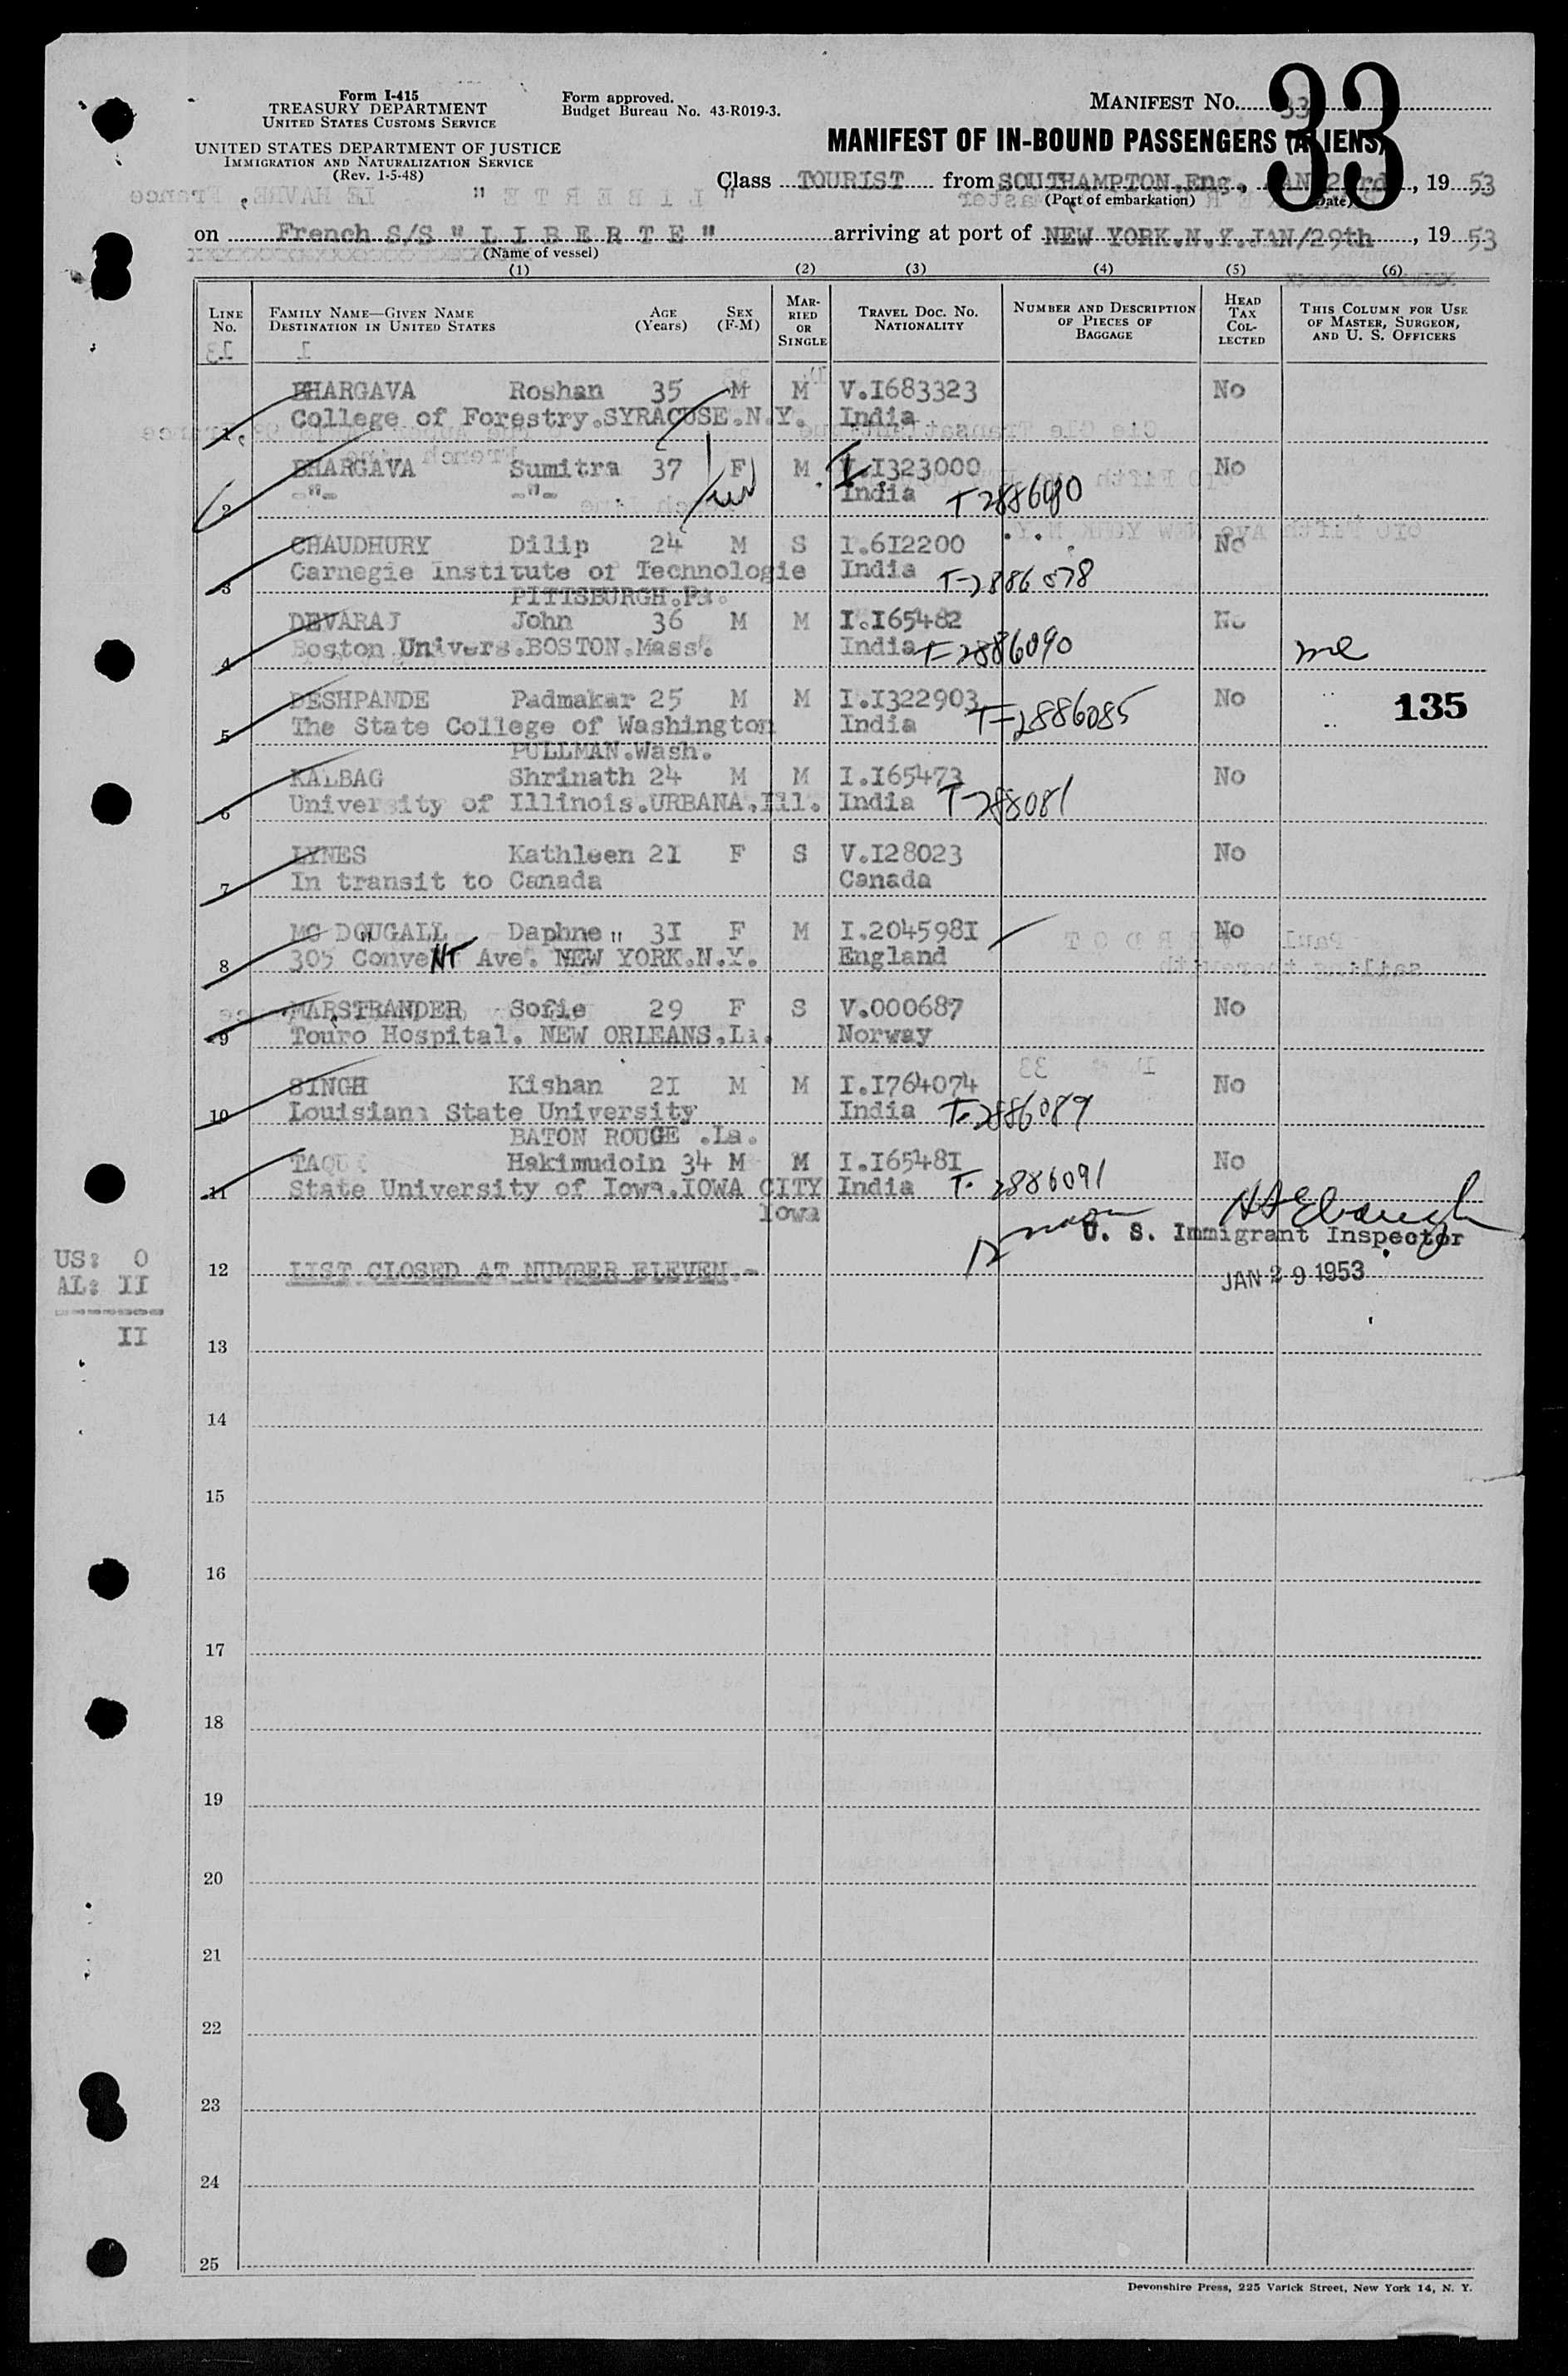 Form I-415
TREASURY DEPARTMENT
UNITED STATES CUSTOMS SERVICE
UNITED STATES DEPARTMENT OF JUSTICE
IMMIGRATION AND NATURALIZATION SERVICE
(Rev. 1-5-48)
Form approved.
Budget Bureau No. 43-R019-3.
MANIFEST No. 33
33
MANIFEST OF IN-BOUND PASSENGERS (ALIENS)
Class TOURIST from SOUTHAMPTON.Eng., JAN 23rd, 19 53
(Port of embarkation) (Date)
on French S/S "L I B E R T E" arriving at port of NEW YORK.N.Y.JAN/29th, 19 53
(Name of vessel)
(1) (2) (3) (4) (5) (6)
LINE No. FAMILY NAME—GIVEN NAME DESTINATION IN UNITED STATES AGE (Years) SEX (F-M) MARRIED OR SINGLE TRAVEL DOC. NO. NATIONALITY NUMBER AND DESCRIPTION OF PIECES OF BAGGAGE HEAD TAX COLLECTED THIS COLUMN FOR USE OF MASTER, SURGEON, AND U. S. OFFICERS
BHARGAVA Roshan 35 M M V.I683323 No
1 College of Forestry.SYRACUSE.N.Y. India
BHARGAVA Sumitra 37 F M I.I323000 No
2 -"- -"- India
CHAUDHURY Dilip 24 M S I.6I2200 No
3 Carnegie Institute of Technologie India T-2886078
PITTSBURGH.Pa.
DEVARAJ John 36 M M I.I65482 No
4 Boston Univers.BOSTON.Mass. India T-2886090
DESHPANDE Padmakar 25 M M I.I322903 No 135
5 The State College of Washington India T-2886085
PULLMAN.Wash.
KALBAG Shrinath 24 M M I.I65473 No
6 University of Illinois.URBANA.Ill. India T-288081
LYNES Kathleen 21 F S V.I28023 No
7 In transit to Canada Canada
MC DOUGALL Daphne 3I F M I.204598I No
8 305 ConveNT Ave. NEW YORK.N.Y. England
MARSTRANDER Sofie 29 F S V.000687 No
9 Touro Hospital. NEW ORLEANS.La. Norway
SINGH Kishan 2I M M I.I764074 No
10 Louisiana State University India T-2886089
BATON ROUGE .La.
Hakimudoin 34 M M I.I6548I No
11 State University of Iowa.IOWA CITY India T-2886091
Iowa
U. S. Immigrant Inspector
JAN 29 1953
12 LIST CLOSED AT NUMBER ELEVEN.-
US: 0
AL: II
II
13
14
15
16
17
18
19
20
21
22
23
24
25
Devonshire Press, 225 Varick Street, New York 14, N. Y.